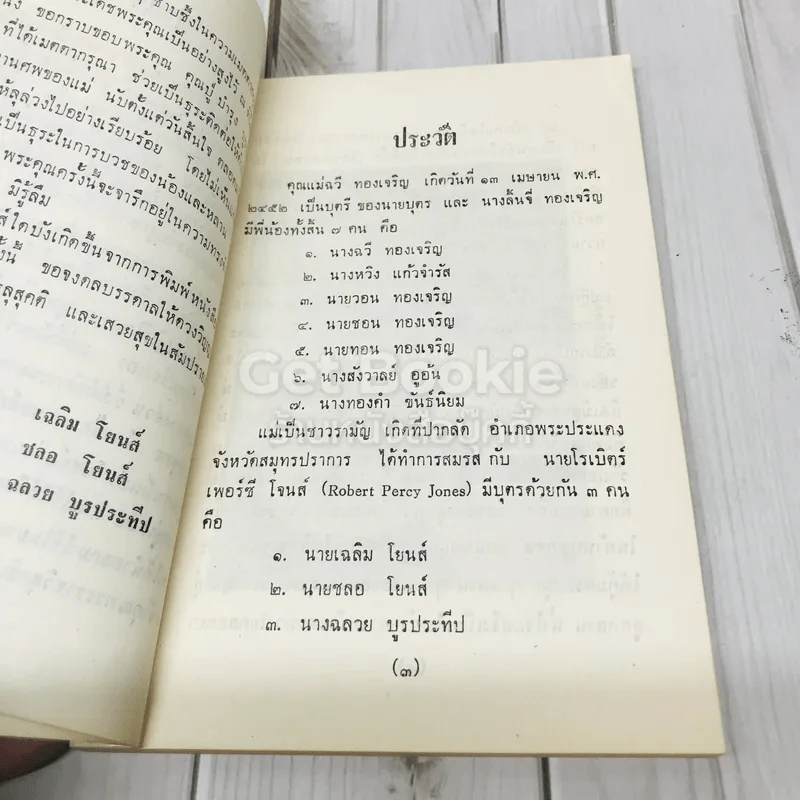 ซาบซึ้งในความเมตตา
เดชพระคุณเป็นอย่างสูงไว้ ณ
ขอกราบขอบพระคุณ คุณปู่ บำรุง
ที่ได้เมตตากรุณา ช่วยเป็นธุระติดต่อให้
งานศพของแม่ นับตั้งแต่วันสิ้นใจ ตลอด
ให้ลุล่วงไปอย่างเรียบร้อย โดยไม่เห็นแก่
เป็นธุระในการบวชของน้องและหลาน
พระคุณครั้งนี้จะจารึกอยู่ในความทรงจำ
มิรู้ลืม
ส์ใดบังเกิดขึ้นจากการพิมพ์หนังสือ
งนี้ ขอจงดลบรรดาลให้ดวงวิญญ
ลุสุคติ และเสวยสุขในสัมปราย
เฉลิม โยนส์
ชลอ โยนส์
ฉลวย บูรประทีป
ประวัติ
คุณแม่ฉวี ทองเจริญ เกิดวันที่ ๑๓ เมษายน พ.ศ.
๒๔๕๒ เป็นบุตรี ของนายบุตร และ นางลิ้นจี่ ทองเจริญ
มีพี่น้องทั้งสิ้น ๗ คน คือ
๑. นางฉวี ทองเจริญ
๒. นางหวิง แก้วจำรัส
๓. นายวอน ทองเจริญ
๔. นายชอน ทองเจริญ
๕. นายทอน ทองเจริญ
๖. นางสังวาลย์ อูอ้น
๗. นางทองคำ ขันธ์นิยม
แม่เป็นชาวรามัญ เกิดที่ปากลัด อำเภอพระประแดง
จังหวัดสมุทรปราการ ได้ทำการสมรส กับ นายโรเบิตร์
เพอร์ซี โจนส์ (Robert Percy Jones) มีบุตรด้วยกัน ๓ คน
คือ
๑. นายเฉลิม โยนส์
๒. นายชลอ โยนส์
๓. นางฉลวย บูรประทีป
(๓)
Get Bookie
ร้านหนังสือปีกกี้